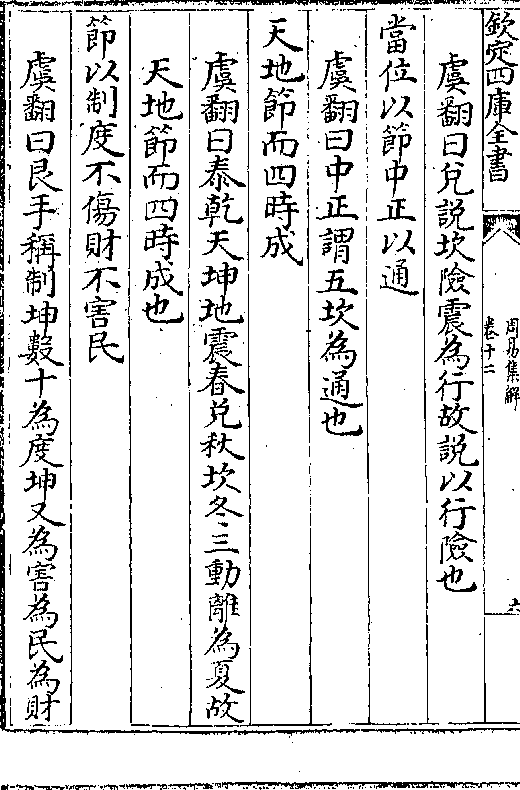 欽定四庫全書
周易集解
卷十二
六
虞翻曰兌說坎險震為行故說以行險也
當位以節中正以通
虞翻曰中正謂五坎為通也
天地節而四時成
虞翻曰泰乾天坤地震春兌秋坎冬三動離為夏故
天地節而四時成也
節以制度不傷財不害民
虞翻曰艮手稱制坤數十為度坤又為害為民為財